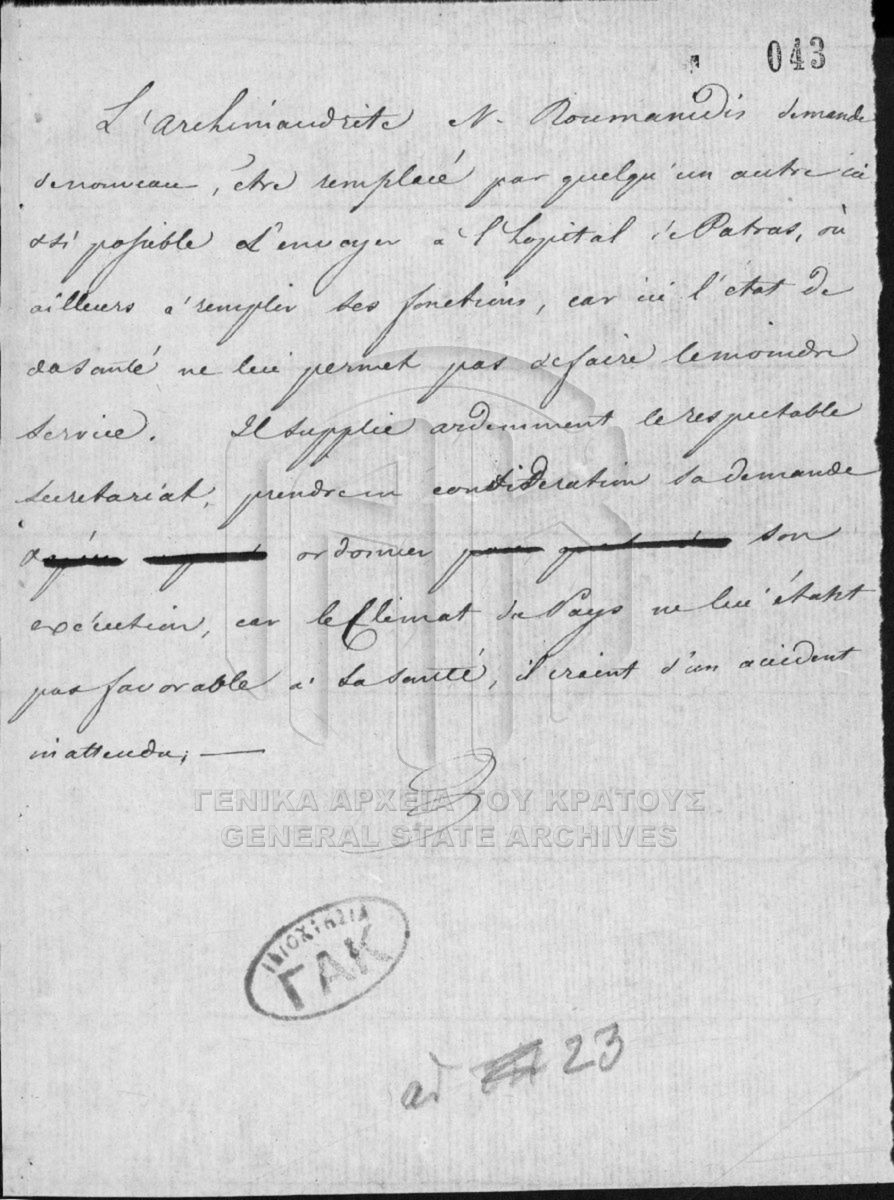 043
L'archimandrite N. Roumanidis demande
denouveau, être remplacé par quelqu'un autre ici
& si possible L'envoyer à l'hopital de Patras, où
ailleurs à remplir ses fonctions, car ici l'état de
sa santé ne lui permet pas de faire le moindre
service. Il supplie ardemment le respectable
secretariat, prendre en considération sa demande
& ordonner son
exécution, car le Climat du Pays ne lui étant
pas favorable à sa santé, il craint d'un accident
inattendu; —
ΓΕΝΙΚΑ ΑΡΧΕΙΑ ΤΟΥ ΚΡΑΤΟΥΣ
GENERAL STATE ARCHIVES
ΙΔΙΟΚΤΗΣΙΑ
ΓΑΚ
ad 23